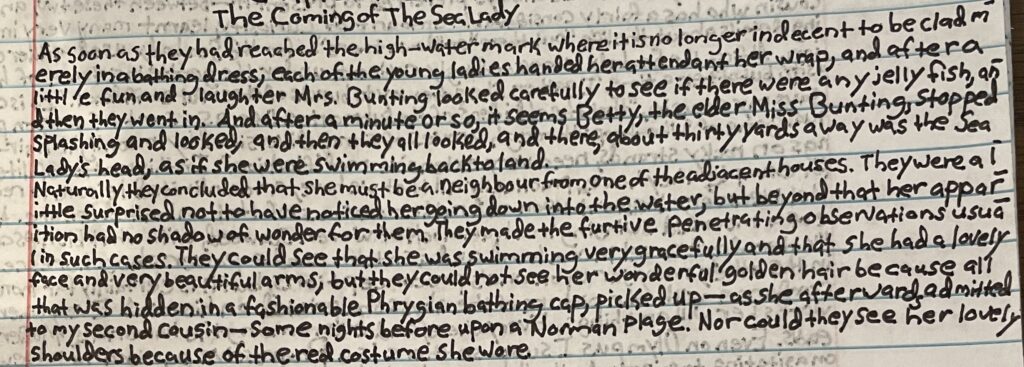 The Coming of The Sea Lady
As soon as they had reached the high-water mark where it is no longer indecent to be clad m
erely in a bathing dress, each of the young ladies handed her attendant her wrap, and after a
little fun and laughter Mrs. Bunting looked carefully to see if there were any jelly fish, an
d then they went in. And after a minute or so, it seems Betty, the elder Miss Bunting, stopped
splashing and looked, and then they all looked, and there, about thirty yards away was the Sea
Lady's head, as if she were swimming back to land.
Naturally they concluded that she must be a neighbour from one of the adjacent houses. They were a l
ittle surprised not to have noticed her going down into the water, but beyond that her appar
ition had no shadow of wonder for them. They made the furtive penetrating observations usua
l in such cases. They could see that she was swimming very gracefully and that she had a lovely
face and very beautiful arms, but they could not see her wonderful golden hair because all
that was hidden in a fashionable Phrygian bathing cap, picked up—as she afterwards admitted
to my second cousin—some nights before upon a Norman plage. Nor could they see her lovely
shoulders because of the red costume she wore.